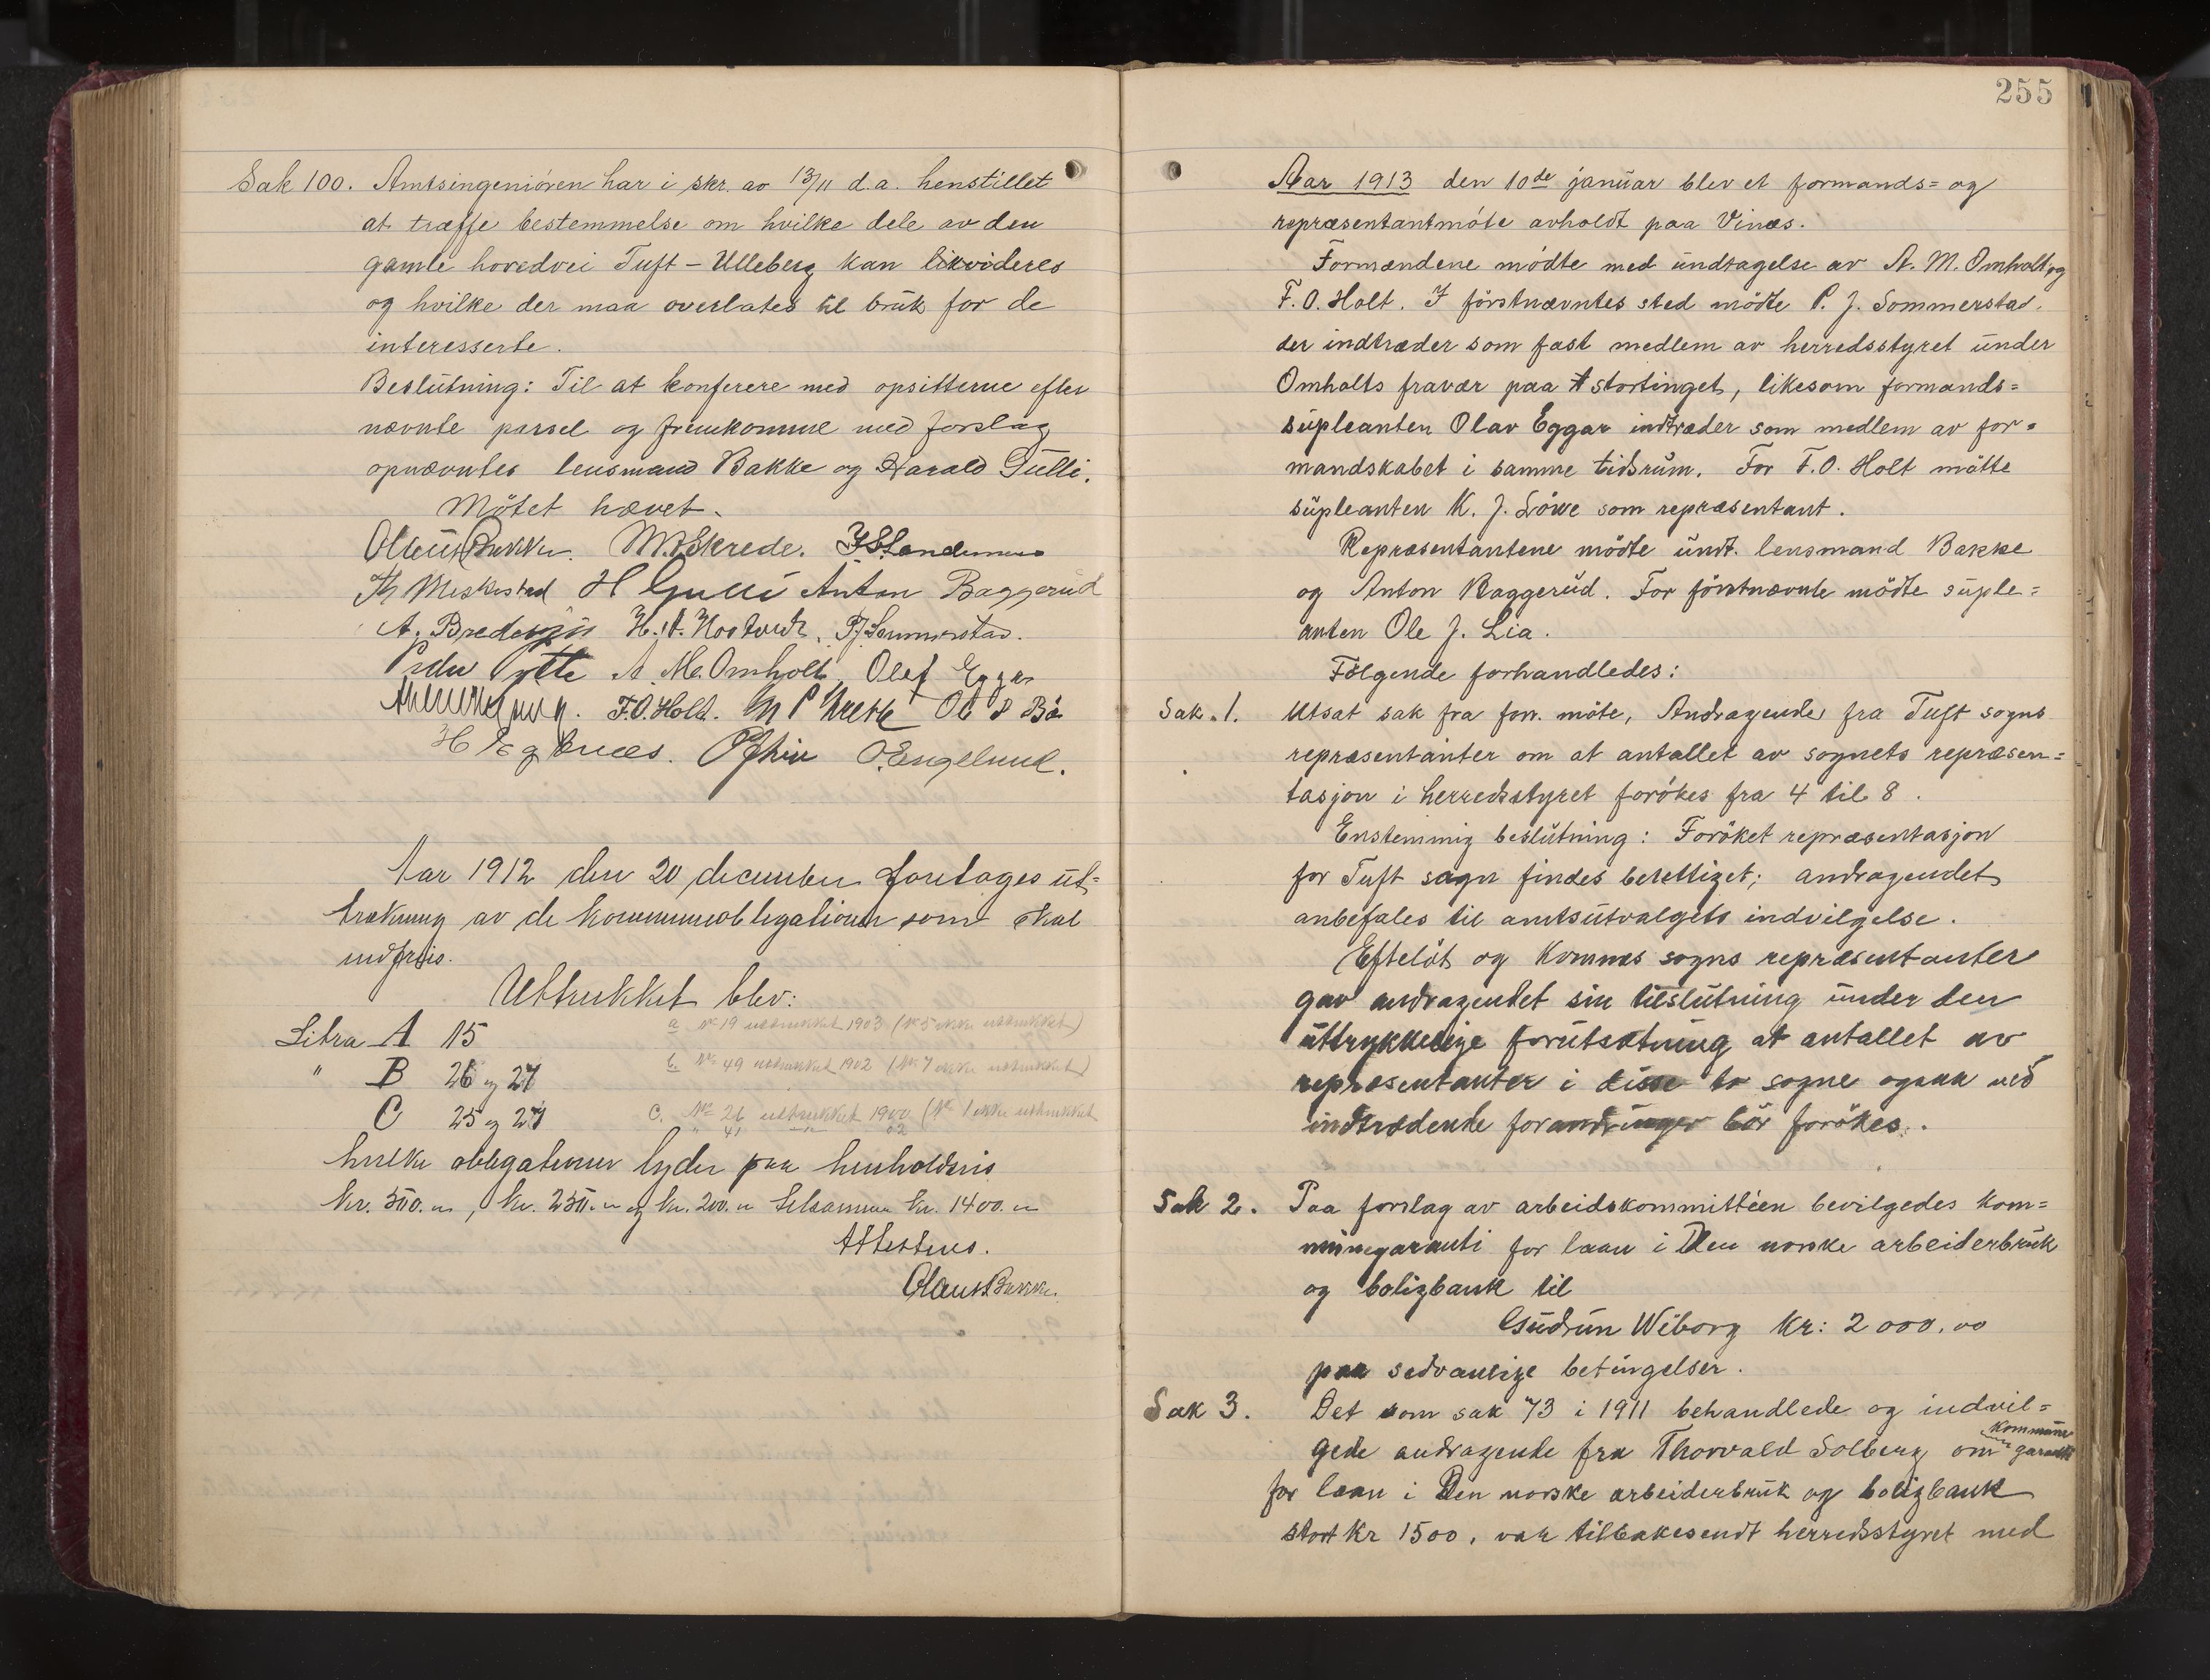 Sak 100. Amtsingeniören har i skr. av 13/11 d.a. henstillet
at træffe bestemmelse om hvilke dele av den
gamle hovedvei Tuft - Ulleberg kan likvideres
og hvilke der maa overlates til bruk for de
interesserte.
Beslutning: Til at konferere med opsitterne efter
nævnte parsel og fremkomme med forslag
opnævntes lensmand Bakke og Harald Gulli.
Mötet hævet.
Olaus Bakke. M. Skrede.
H Gulli Anton Baggerud
A. Bredesen P J Sommerstad.
A. M. Omholt Olaf Eggar
F.O. Holt. Ole Bö
O. Engelund.
Aar 1912 den 20 december foretoges ut=
trækning av de kommuneobligationer som skal
indfries.
Uttrukket blev:
Litra A 15
a No 19 uttrukket 1903 (No 5 ikke uttrukket)
" B 26 og 27
b. No 49 uttrukket 1902 (No 7 ikke uttrukket)
C 25 og 27
c. No 26 uttrukket 1900 (No 1 ikke uttrukket
" 41 —"— 02
hvilke obligationer lyder paa henholdsvis
kr. 500.-, kr. 250.- og kr. 200.- tilsammen kr. 1400.-
Attesteres.
Olaus Bakke.
255
Aar 1913 den 10de januar blev et formands= og
repræsentantmöte avholdt paa Vinæs.
Formændene mödte med undtagelse av A. M. Omholt og
F. O. Holt. I förstnævntes sted mödte P. J. Sommerstad.
der indtræder som fast medlem av herredsstyret under
Omholts fravær paa stortinget, likesom formands=
supleanten Olav Eggar indtræder som medlem av for=
mandskabet i samme tidsrum. For F. O. Holt mötte
supleanten K. J. Löwe som repræsentant.
Repræsentantene mödte undt. lensmand Bakke
og Anton Baggerud. For förstnævnte mödte suple=
anten Ole J. Lia.
Fölgende forhandledes:
Sak. 1. Utsat sak fra forr. möte, Andragende fra Tuft sogns
repræsentanter om at antallet av sognets repræsen=
tasjon i herredsstyret forökes fra 4 til 8.
Enstemmig beslutning: Foröket repræsentasjon
for Tuft sogn findes berettiget; andragendet
anbefales til amtsutvalgets indvilgelse.
Eftelöt og Komnes sogns repræsentanter
gav andragendet sin tilslutning under den
uttrykkelige forutsætning at antallet av
repræsentanter i disse to sogne ogsaa ved
indtrædende forandringer bör forökes.
Sak 2. Paa forslag av arbeidskommittéen bevilgedes kom=
munegaranti for laan i Den norske arbeiderbruk
og boligbank til
Gudrun Wiborg kr: 2000,00
paa sedvanlige betingelser.
Sak 3. Det som sak 73 i 1911 behandlede og indvil=
gede andragende fra Thorvald Solberg om kommune garanti
for laan i Den norske arbeiderbruk og boligbank
stort kr 1500, var tilbakesendt herredsstyret med